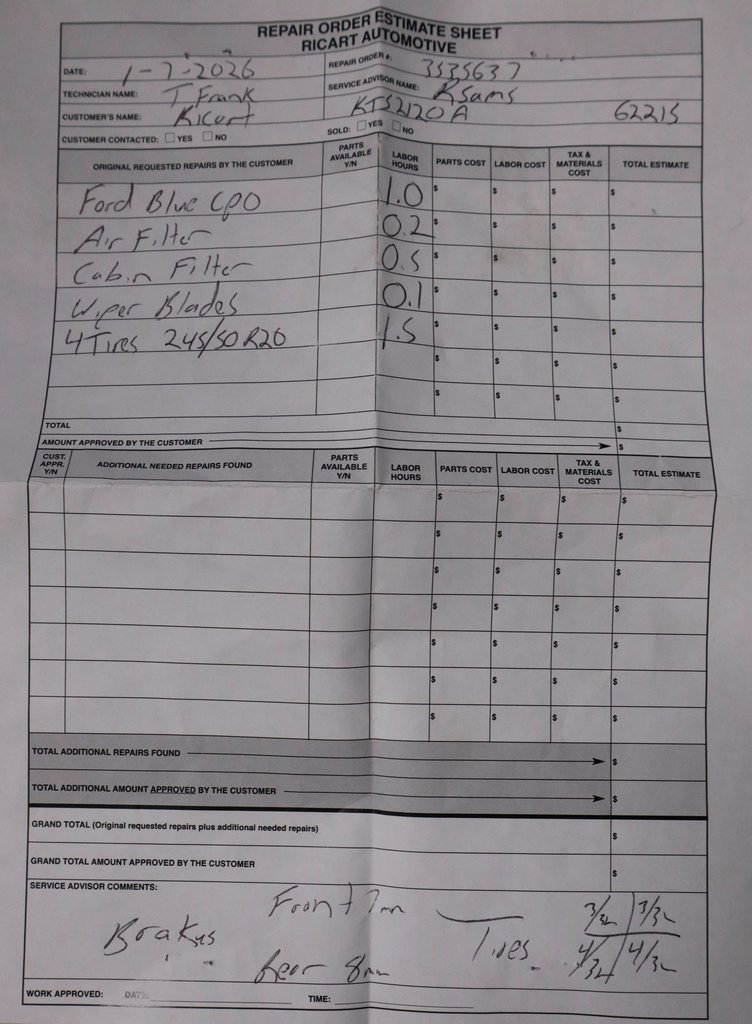 REPAIR ORDER ESTIMATE SHEET
RICART AUTOMOTIVE
DATE: 1-7-2026 REPAIR ORDER #: 3535637
TECHNICIAN NAME: T Frank SERVICE ADVISOR NAME: RSams
CUSTOMER'S NAME: Ricart KTS2120A 62215
CUSTOMER CONTACTED: YES NO SOLD: YES NO
ORIGINAL REQUESTED REPAIRS BY THE CUSTOMER PARTS AVAILABLE Y/N LABOR HOURS PARTS COST LABOR COST TAX & MATERIALS COST TOTAL ESTIMATE
Ford Blue CPO 1.0 $ $ $ $
Air Filter 0.2 $ $ $ $
Cabin Filter 0.5 $ $ $ $
Wiper Blades 0.1 $ $ $ $
4 Tires 245/50R20 1.5 $ $ $ $
$ $ $ $
$ $ $ $
TOTAL $
AMOUNT APPROVED BY THE CUSTOMER $
CUST. APPR. Y/N ADDITIONAL NEEDED REPAIRS FOUND PARTS AVAILABLE Y/N LABOR HOURS PARTS COST LABOR COST TAX & MATERIALS COST TOTAL ESTIMATE
$ $ $ $
$ $ $ $
$ $ $ $
$ $ $ $
$ $ $ $
$ $ $ $
$ $ $ $
TOTAL ADDITIONAL REPAIRS FOUND $
TOTAL ADDITIONAL AMOUNT APPROVED BY THE CUSTOMER $
GRAND TOTAL (Original requested repairs plus additional needed repairs) $
GRAND TOTAL AMOUNT APPROVED BY THE CUSTOMER $
SERVICE ADVISOR COMMENTS:
Front 7mm 3/32 3/32
Brakes Tires
Rear 8mm 4/32 4/32
WORK APPROVED: DATE: TIME: